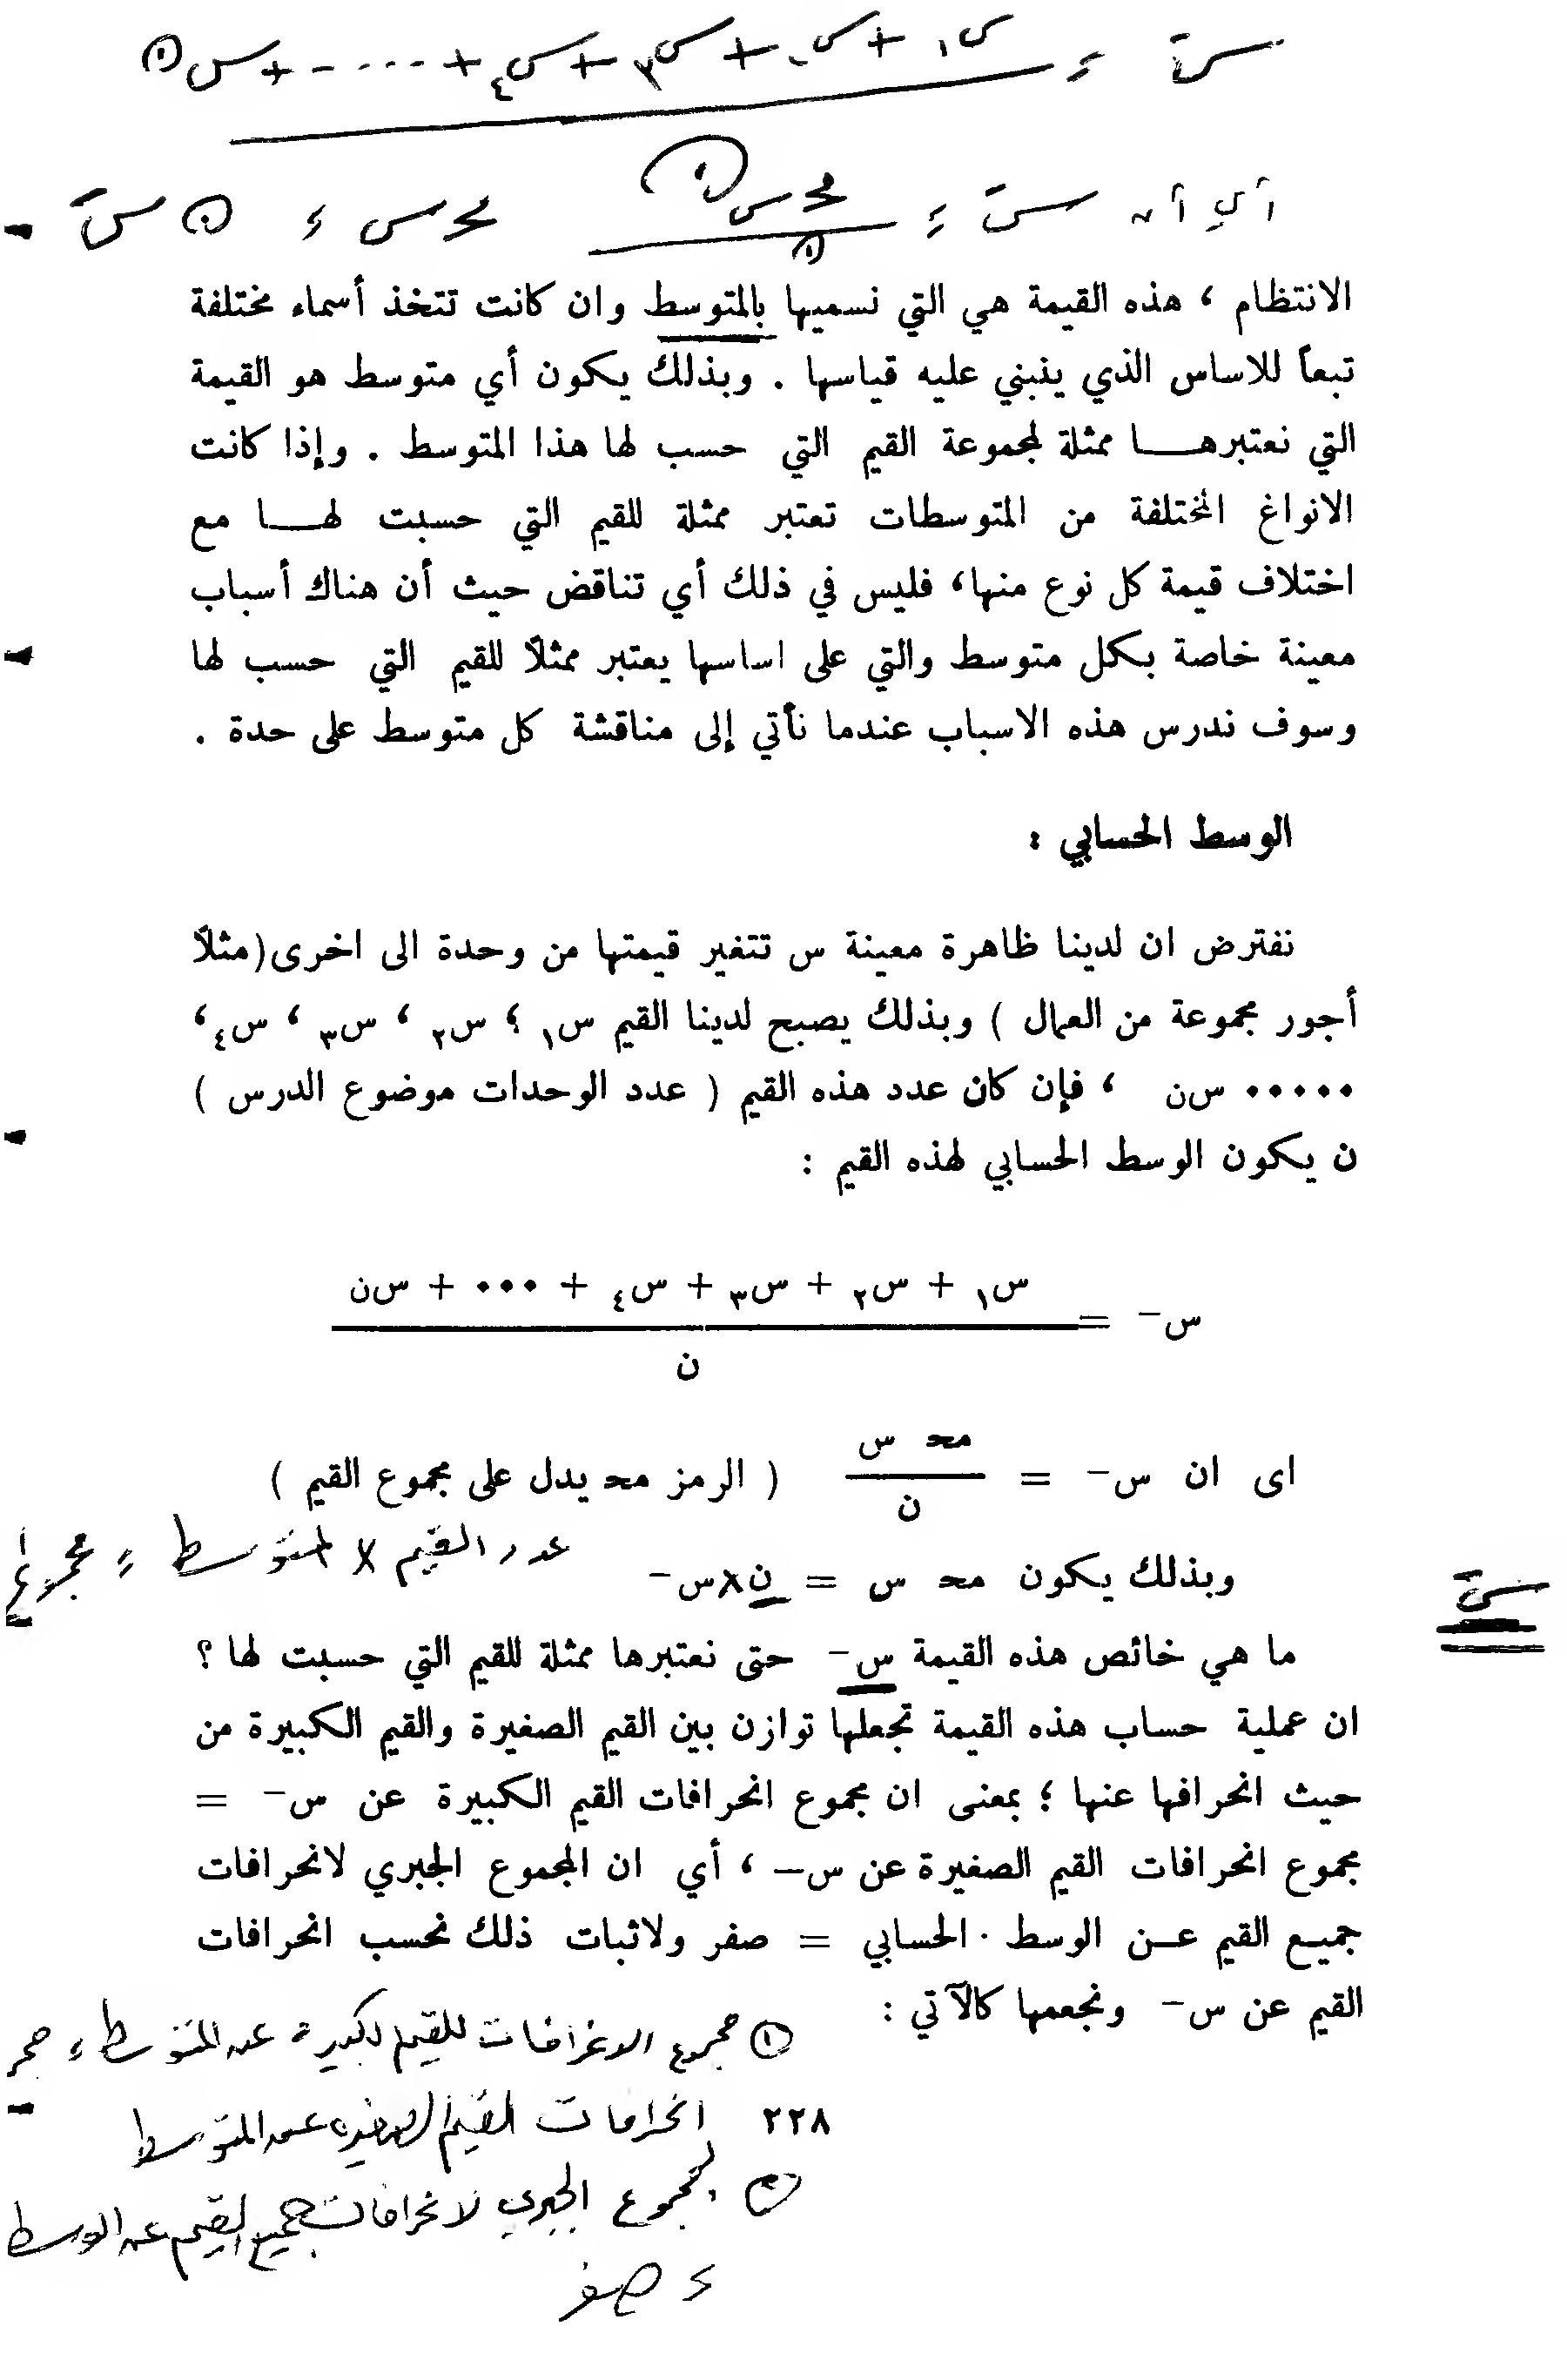 سَ = س١ + س٢ + س٣ + س٤ + .... + سن
أي أن سَ = محـ س / ن محـ س = ن سَ
الانتظام ، هذه القيمة هي التي نسميها بالمتوسط وان كانت تتخذ أسماء مختلفة
تبعاً للاساس الذي ينبني عليه قياسها . وبذلك يكون أي متوسط هو القيمة
التي نعتبرهـــا ممثلة لمجموعة القيم التي حسب لها هذا المتوسط . وإذا كانت
الانواغ المختلفة من المتوسطات تعتبر ممثلة للقيم التي حسبت لهـــا مع
اختلاف قيمة كل نوع منها، فليس في ذلك أي تناقض حيث أن هناك أسباب
معينة خاصة بكل متوسط والتي على اساسها يعتبر ممثلاً للقيم التي حسب لها
وسوف ندرس هذه الاسباب عندما نأتي إلى مناقشة كل متوسط على حدة .
الوسط الحسابي :
نفترض ان لدينا ظاهرة معينة س تتغير قيمتها من وحدة الى اخرى (مثلاً
أجور مجموعة من العمال ) وبذلك يصبح لدينا القيم س١ ؛ س٢ ، س٣ ، س٤،
..... سن ، فإن كان عدد هذه القيم ( عدد الوحدات موضوع الدرس )
ن يكون الوسط الحسابي لهذه القيم :
س١ + س٢ + س٣ + س٤ + ... + سن
س- =
ن
محـ س
اى ان س- = ( الرمز محـ يدل على مجموع القيم )
ن
عدد القيم × المتوسط = مجموع
وبذلك يكون محـ س = ن×س-
سَ
ما هي خائص هذه القيمة س- حتى نعتبرها ممثلة للقيم التي حسبت لها ؟
ان عملية حساب هذه القيمة تجعلها توازن بين القيم الصغيرة والقيم الكبيرة من
حيث انحرافها عنها ؛ بمعنى ان مجموع انحرافات القيم الكبيرة عن س- =
مجموع انحرافات القيم الصغيرة عن س- ، أي ان المجموع الجبري لانحرافات
جميـع القيم عـن الوسط . الحسابي = صفر ولاثبات ذلك نحسب انحرافات
القيم عن س- ونجعمها كالآتي :
① مجموع الانحرافات للقيم الكبيرة عن المتوسط =
٢٢٨ انحرافات القيم الصغيرة عن المتوسط
② المجموع الجبري لانحرافات جميع القيم عن الوسط
= صفر